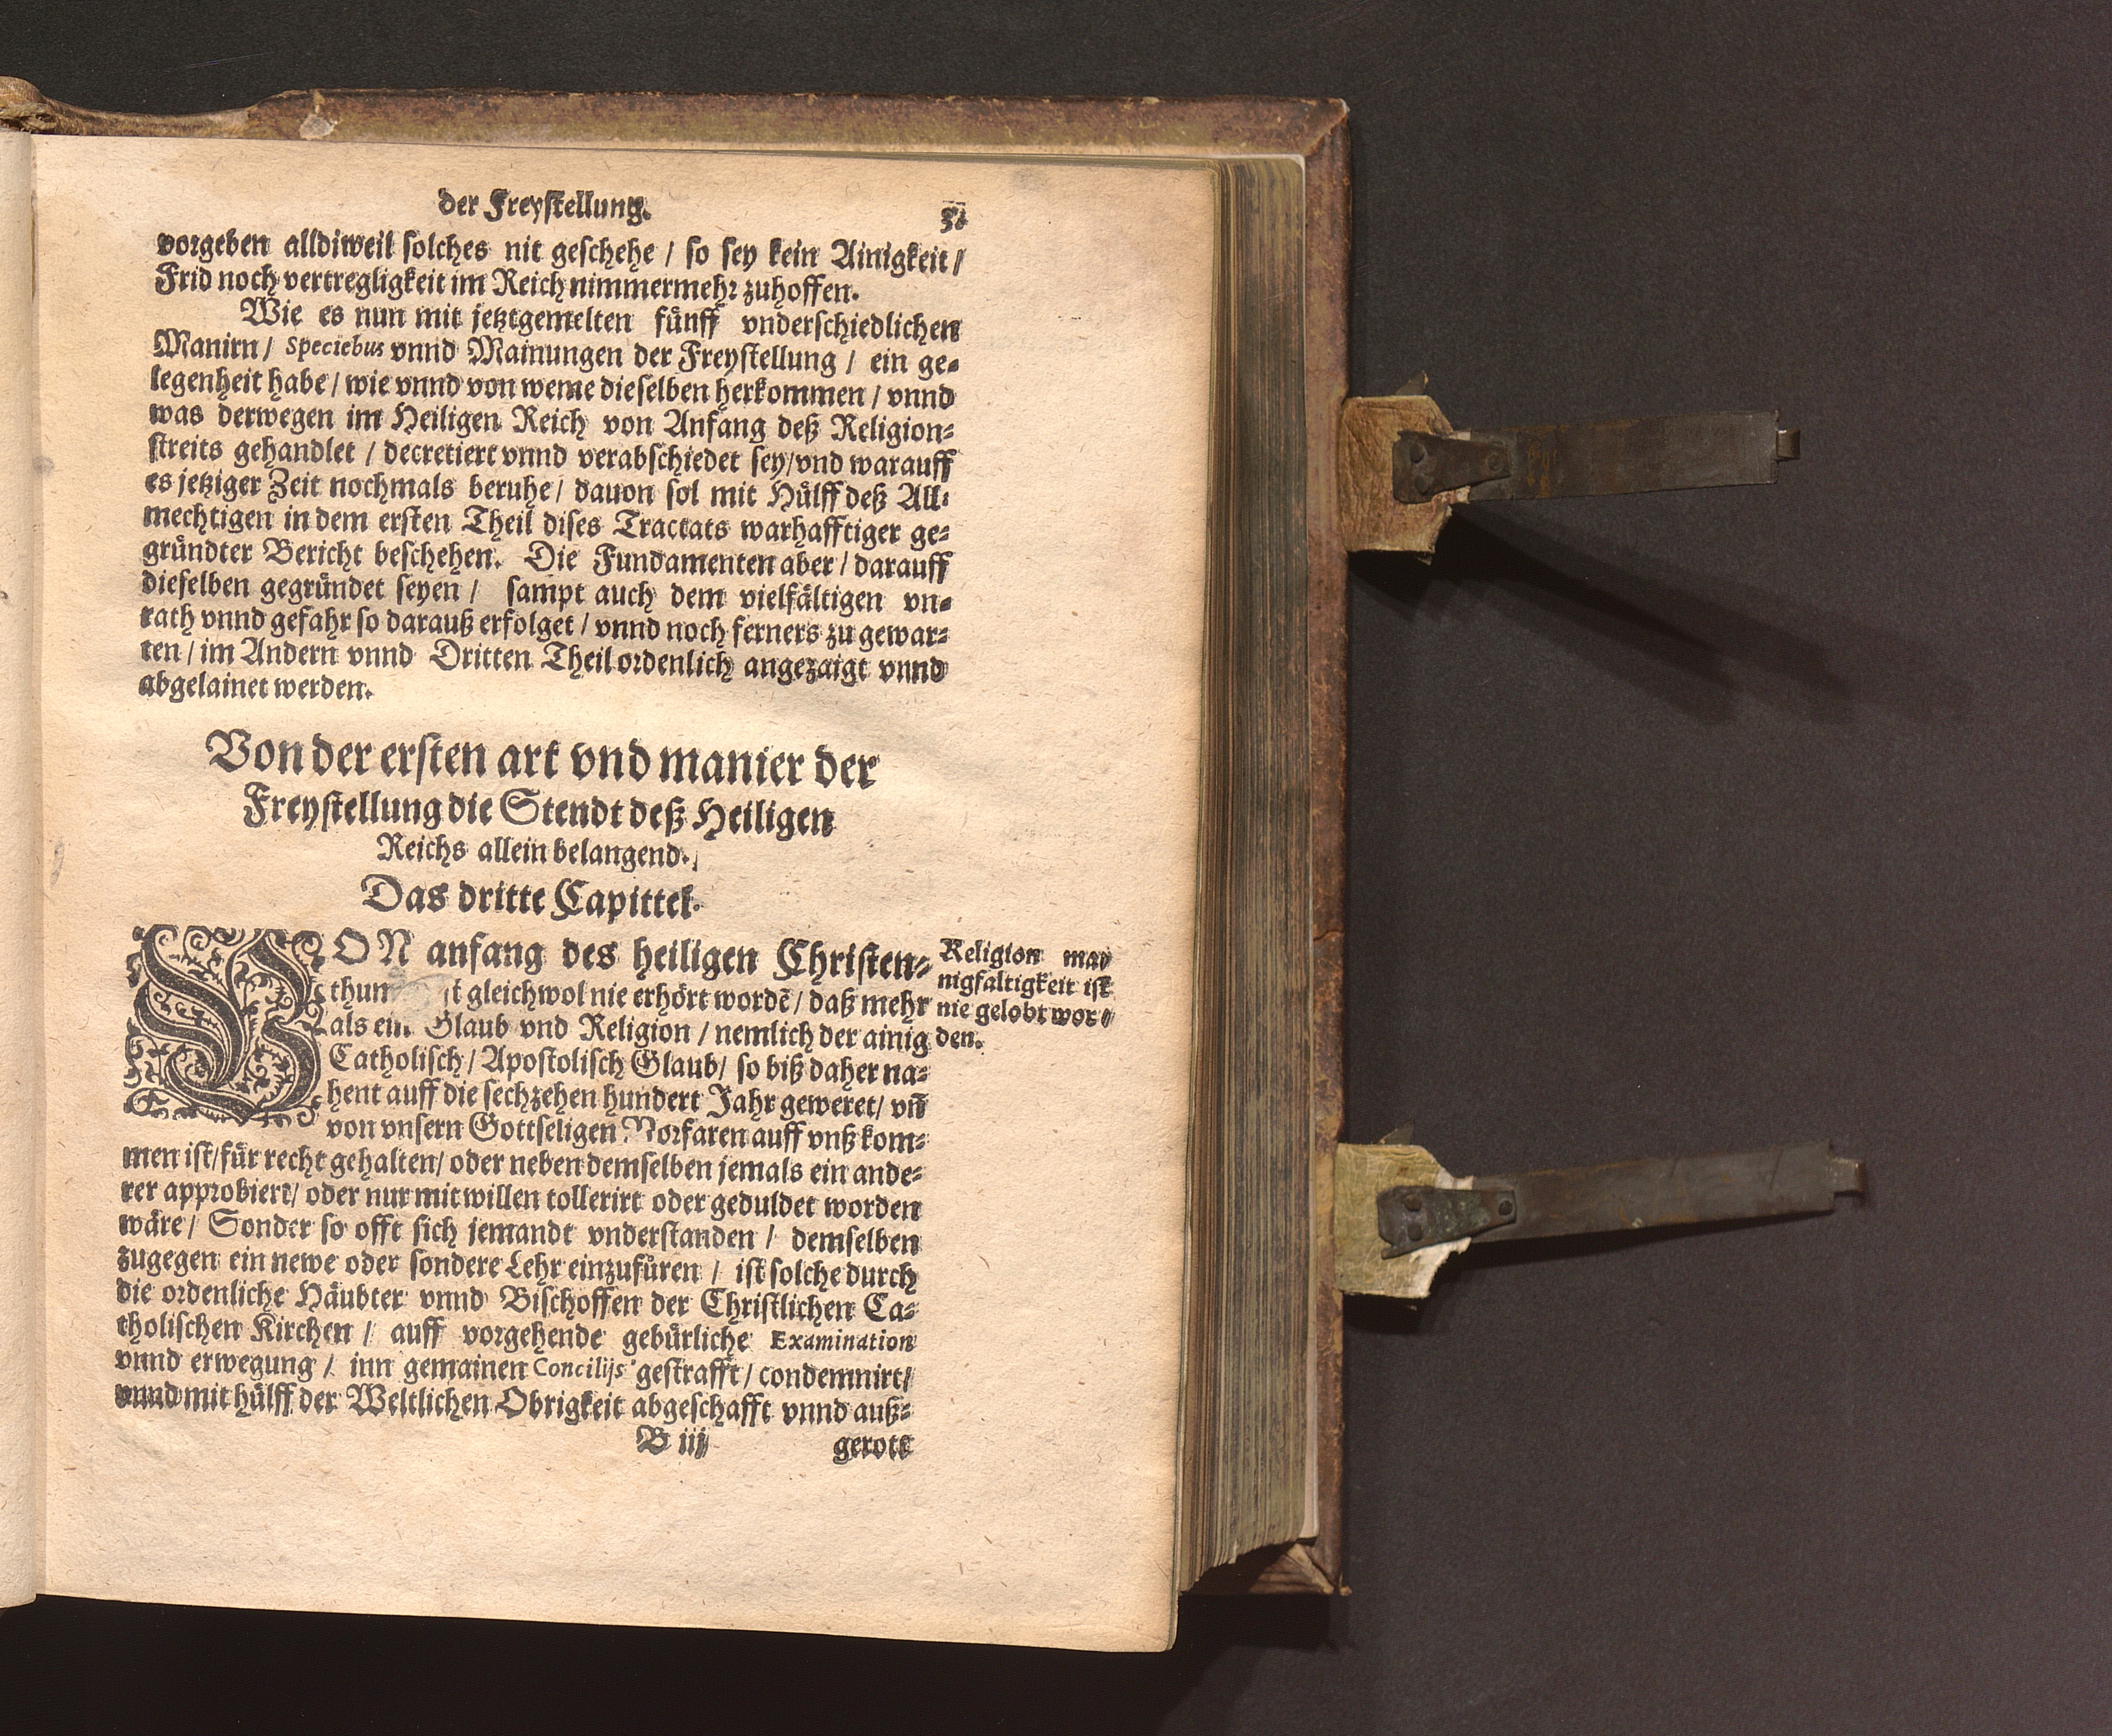 der Freystellung.
vorgeben alldiweil solches nit geschehe / so sey kein Ainigkeit /
Frid noch vertregligkeit im Reich nimmermehr zuhoffen.
Wie es nun mit jetztgemelten fünff vnderschiedlichen
Manirn / Speciebus vnnd Mainungen der Freystellung / ein ge-
legenheit habe / wie vnnd von weme dieselben herkommen / vnnd
was derwegen im Heiligen Reich von Anfang deß Religion-
streits gehandlet / decretiert vnnd verabschiedet sey / vnd warauff
es jetziger Zeit nochmals beruhe / dauon sol mit Hülff deß All-
mechtigen in dem ersten Theil dises Tractats warhafftiger ge-
gründter Bericht beschehen. Die Fundamenten aber / darauff
dieselben gegründet seyen / sampt auch dem vielfältigen vn-
rath vnnd gefahr so darauß erfolget / vnnd noch ferners zu gewar-
ten / im Andern vnnd Dritten Theil ordenlich angezaigt vnnd
abgelainet werden.
Von der ersten art vnd manier der
Freystellung die Stendt deß Heiligen
Reichs allein belangend.
Das dritte Capittel.
VON anfang des heiligen Christen-
thum gleichwol nie erhört wordē / daß mehr
als ein Glaub vnd Religion / nemlich der ainig
Catholisch / Apostolisch Glaub / so biß daher na-
hent auff die sechzehen hundert Jahr geweret / vn̄
von vnsern Gottseligen Vorfaren auff vnß kom-
men ist / für recht gehalten / oder neben demselben jemals ein ande-
rer approbiert / oder nur mit willen tollerirt oder geduldet worden
wäre / Sonder so offt sich jemandt vnderstanden / demselben
zugegen ein newe oder sondere Lehr einzufüren / ist solche durch
die ordenliche Häubter vnnd Bischoffen der Christlichen Ca-
tholischen Kirchen / auff vorgehende gebürliche Examination
vnnd erwegung / inn gemainen Concilijs gestrafft / condemnirt /
vnnd mit hülff der Weltlichen Obrigkeit abgeschafft vnnd auß-
B iij gerott
Religion man
nigfaltigkeit ist
nie gelobt wor-
den.